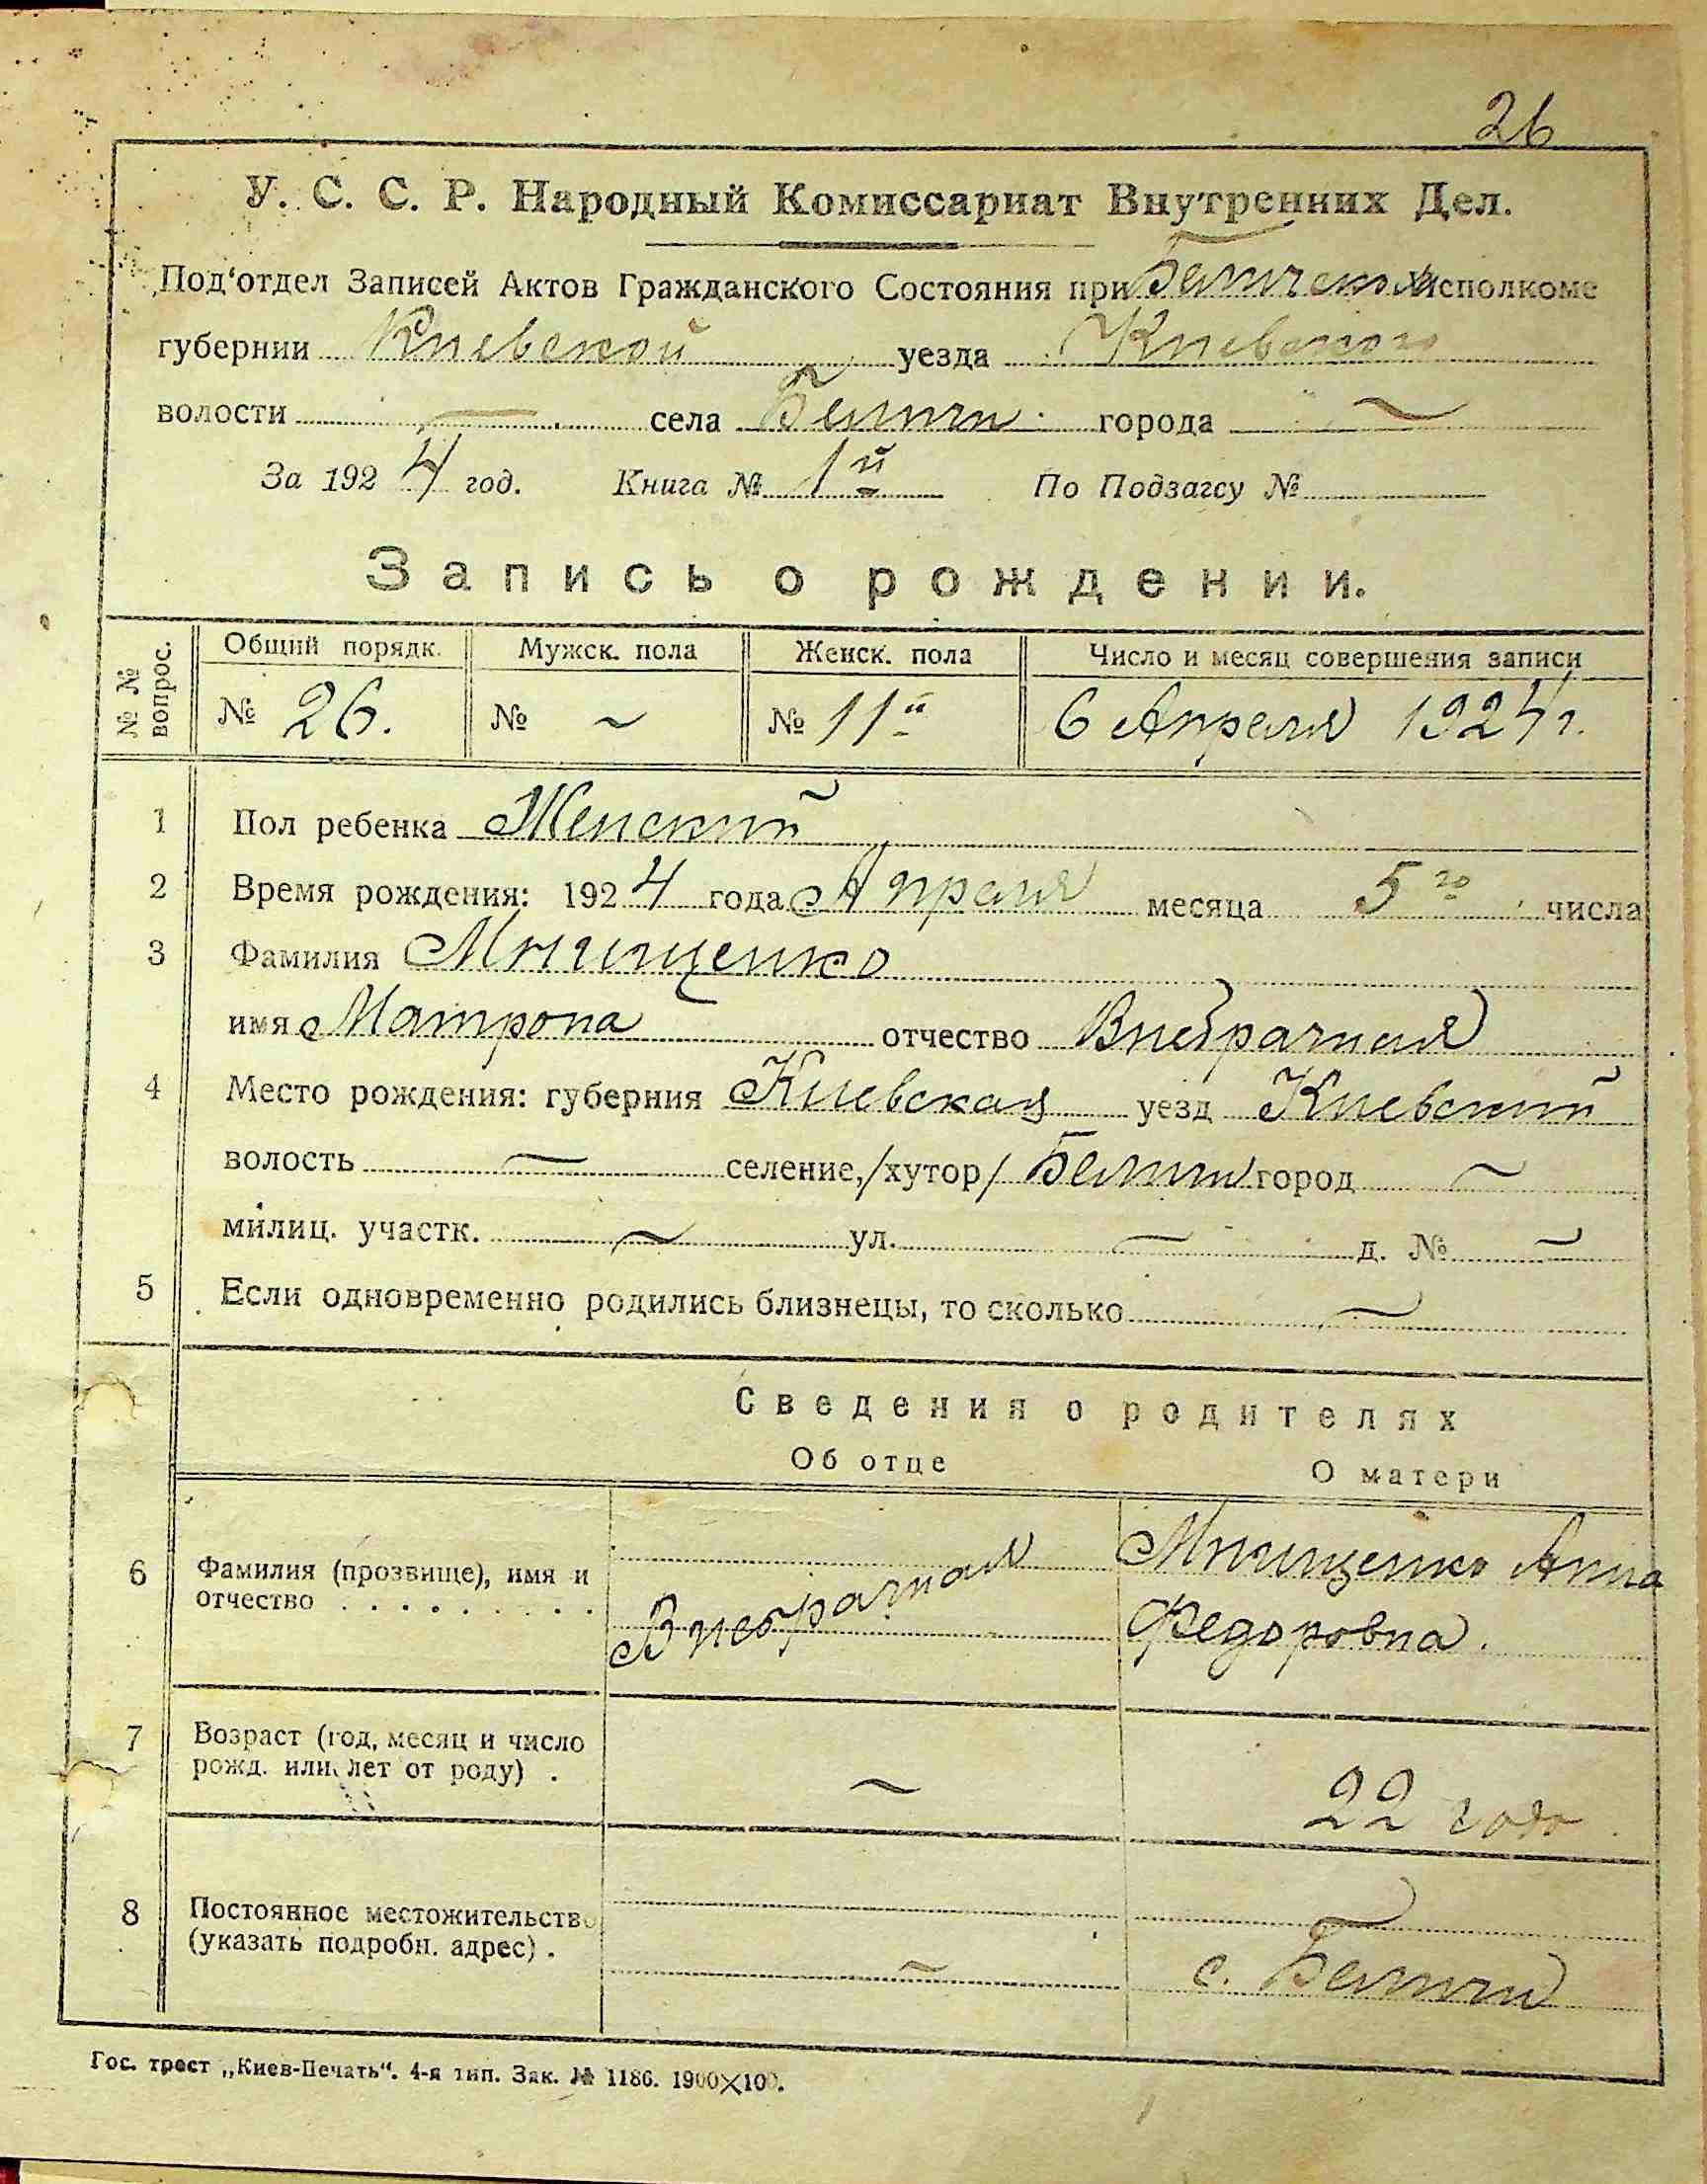 26
У. С. С. Р. Народный Комиссариат Внутренних Дел.
Под'отдел Записей Актов Гражданского Состояния при Исполкоме
губернии Киевской уезда Киевского
волости — села Беличи города —
За 1924 год. Книга № 1й По Подзагсу №
Запись о рождении.
№ № вопрос. Общий порядк. Мужск. пола Женск. пола Число и месяц совершения записи
№ 26. № ~ № 11й 6 Апреля 1924 г.
1 Пол ребенка Женский
2 Время рождения: 1924 года Апреля месяца 5го числа
3 Фамилия Мнищенко
имя Матрона отчество Внебрачная
4 Место рождения: губерния Киевская уезд Киевский
волость — селение, /хутор/ Беличи город —
милиц. участк. ~ ул. — д. № —
5 Если одновременно родились близнецы, то сколько —
Сведения о родителях
Об отце О матери
6 Фамилия (прозвище), имя и Внебрачная Мнищенко Анна
отчество . . . . . . . . . Федоровна.
7 Возраст (год, месяц и число
рожд. или лет от роду) . ~ 22 года
8 Постоянное местожительство
(указать подробн. адрес) . ~ с. Беличи
Гос. трест „Киев-Печать“. 4-я тип. Зак. № 1186. 1900×100.